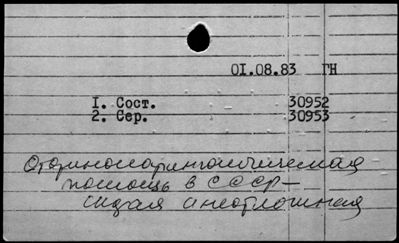 01.08.83 ГН
1. Сост. 30952
2. Сер. 30953
Оториноларингологическая
помощь в СССР —
скорая и неотложная